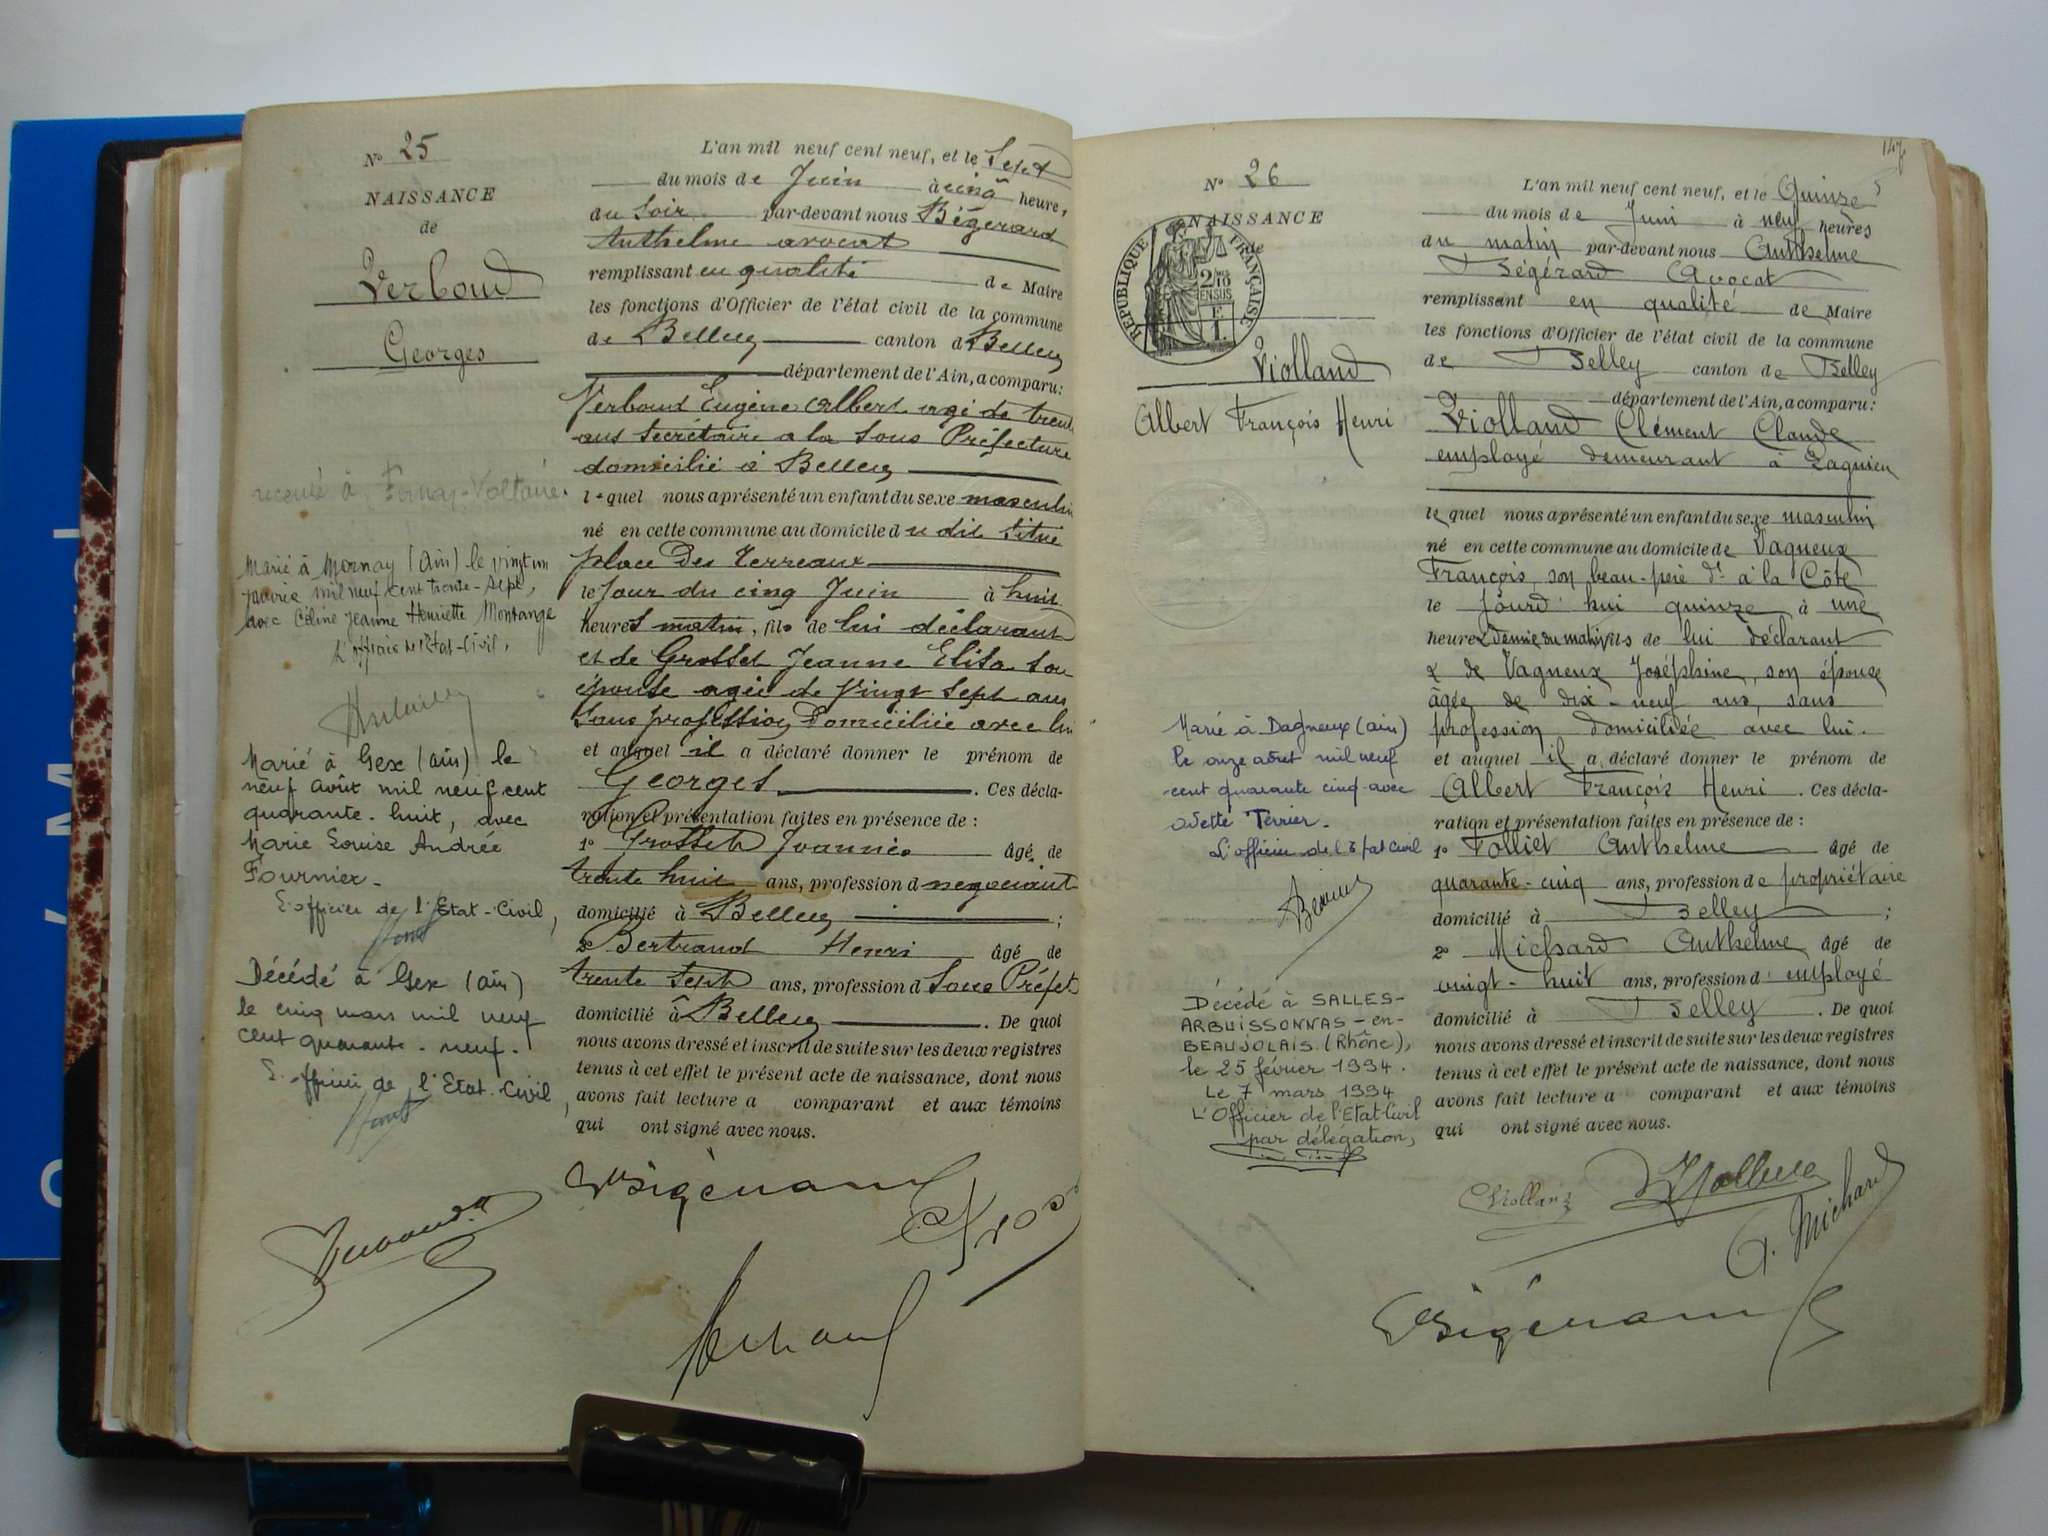 N° 25
NAISSANCE
de
Verboud
Georges
recensé à Fernay-Voltaire.
Marié à Mornay (Ain) le vingt un
janvier mil neuf cent trente-sept,
avec Céline Jeanne Henriette Montange
L'officier de l'Etat-Civil,
Marié à Gex (ain) le
neuf Août mil neuf cent
quarante-huit, avec
Marie Louise Andrée
Fournier.
L'officier de l'Etat-Civil,
Décédé à Gex (ain)
le cinq mars mil neuf
cent quarante-neuf.
L'officier de l'Etat-Civil,
L'an mil neuf cent neuf, et le Sept
du mois de Juin à cinq heures
du Soir par-devant nous Bégerard
Anthelme avocat
remplissant en qualité de Maire
les fonctions d'Officier de l'état civil de la commune
de Belley canton de Belley
département de l'Ain, a comparu:
Verboud Eugène Albert agé de trente
ans Secrétaire a la Sous Préfecture
domicilié à Belley
lequel nous a présenté un enfant du sexe masculin
né en cette commune au domicile du dit Situé
place Des Terreaux
le Jour du cinq Juin à huit
heures matin, fils de lui déclarant
et de Grosset Jeanne Elisa Son
épouse agée de Vingt Sept ans
Sans profession Domiciliée avec lui
et auquel il a déclaré donner le prénom de
Georges. Ces décla-
ration et présentation faites en présence de :
1° Grosset Joannès âgé de
trente huit ans, profession d negociant
domicilié à Belley ;
2° Bertrand Henri âgé de
trente Sept ans, profession d Sous Préfet
domicilié à Belley. De quoi
nous avons dressé et inscrit de suite sur les deux registres
tenus à cet effet le présent acte de naissance, dont nous
avons fait lecture a comparant et aux témoins
qui ont signé avec nous.
Bégérard
147
N° 26
NAISSANCE
de
RÉPUBLIQUE FRANÇAISE
2/10
EN SUS
Violland
Albert François Henri
Marié à Dagneux (ain)
le onze août mil neuf
cent quarante cinq avec
Odette Terrier.
L'officier de l'Etat Civil
Décédé à SALLES-
ARBUISSONNAS-en-
BEAUJOLAIS (Rhône),
le 25 février 1994.
Le 7 mars 1994
L'Officier de l'Etat-Civil
par délégation,
L'an mil neuf cent neuf, et le Quinze
du mois de Juin à neuf heures
du matin par-devant nous Anthelme
Bégérard Avocat
remplissant en qualité de Maire
les fonctions d'Officier de l'état civil de la commune
de Belley canton de Belley
département de l'Ain, a comparu:
Violland Clément Claude
employé demeurant à Lagnieu
lequel nous a présenté un enfant du sexe masculin
né en cette commune au domicile de Vagneux
François, son beau-père dt à la Côte
le jourd'hui quinze à une
heure & demie du matin fils de lui déclarant
& de Vagneux Joséphine, son épouse
âgée de dix-neuf ans, sans
profession domiciliée avec lui.
et auquel il a déclaré donner le prénom de
Albert François Henri. Ces décla-
ration et présentation faites en présence de :
1° Folliet Anthelme âgé de
quarante-cinq ans, profession de propriétaire
domicilié à Belley ;
2° Michard Anthelme âgé de
vingt-huit ans, profession d'employé
domicilié à Belley. De quoi
nous avons dressé et inscrit de suite sur les deux registres
tenus à cet effet le présent acte de naissance, dont nous
avons fait lecture a comparant et aux témoins
qui ont signé avec nous.
CViolland
A. Michard
Bégérard